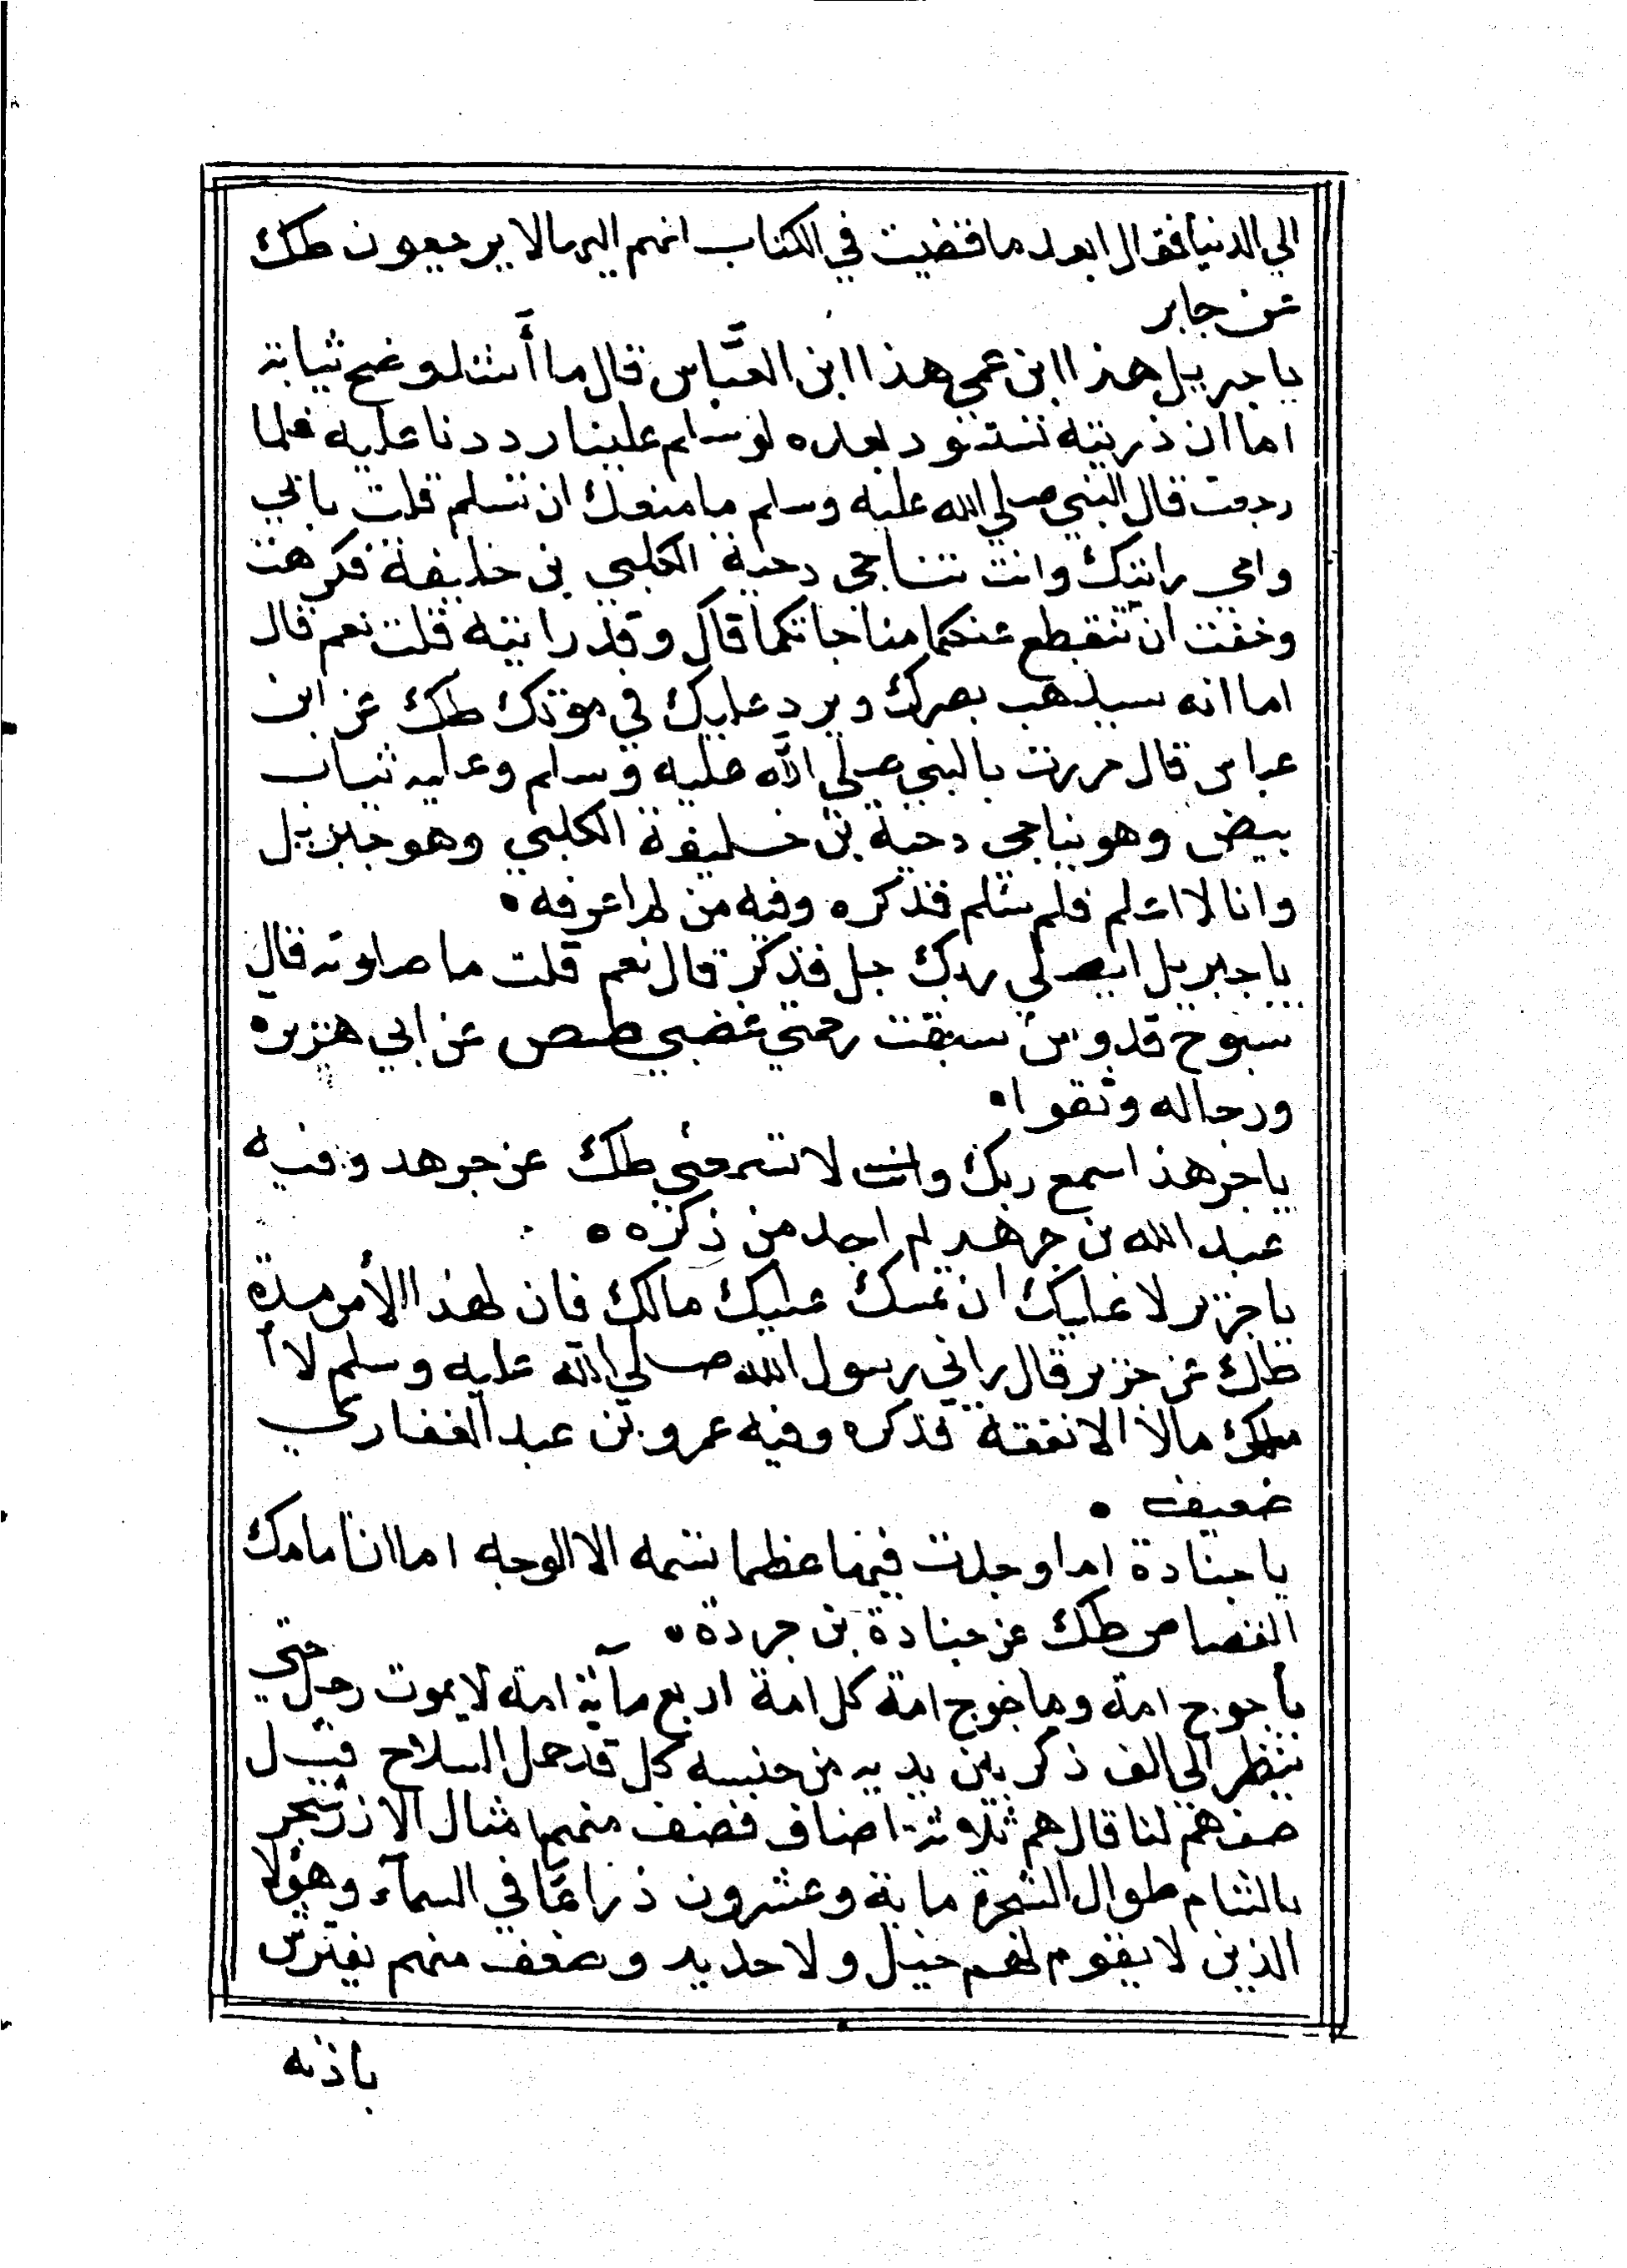 الي الدنيا فقال ابعد ما قضيت في الكتاب انهم اليها لا يرجعون طك
عن جابر
يا جبريل هذا ابن عمي هذا ابن العباس قال ما أشد وضح ثيابه
اما ان ذريته تستنود بعده لو سلم علينا رددنا عليه فلما
رجعت قال النبي صلي الله عليه وسلم ما منعك ان تسلم قلت بابي
وامي رايتك وانت تناجي دحية الكلبي بن خليفة فكرهت
وخفت ان تنقطع عنكما مناجاتكما قال وقد رايته قلت نعم قال
اما انه سيذهب بصرك ويرد عليك في موتك طك عن ابن
عباس قال مررت بالنبي صلي الله عليه وسلم وعليه ثياب
بيض وهو يناجي دحية بن خليفة الكلبي وهو جبريل
وانا لا اعلم فلم اسلم فذكره وفيه من لم اعرفه
يا جبريل ايصلي ربك جل ذكره قال نعم قلت ما صلوته قال
سبوح قدوس سبقت رحمتي غضبي طص عن ابي هريره
ورجاله وثقوا
يا جرهد اسمع ربك وانت لا تسمعني طك عن جرهد وفيه
عبد الله بن جرهد لم اجد من ذكره
يا جزير لا عليك ان تمسك عليك مالك فان لهذا الأمر مدة
طك عن جزير قال راني رسول الله صلي الله عليه وسلم لا أ
ملك مالا الا نفقة فذكره وفيه عمرو بن عبد الغفار
ضعيف
يا جنادة اما وجدت فيها عظما تسمه الا الوجه اما ان امامك
القصاص طك عن جنادة بن جردة
يأجوج امة وماجوج امة كل امة اربع مأية امة لا يموت رجل حتي
ينظر الي الف ذكر بين يديه من جنسه كل قد حمل السلاح قيل
صفهم لنا قال هم ثلاثة اصناف فصنف منهم امثال الارز شجر
بالشام طوال الشجرة ماية وعشرون ذراعا في السمآء وهؤلا
الذين لا يقوم لهم خيل ولا حديد وصنف منهم يفترش
باذنه